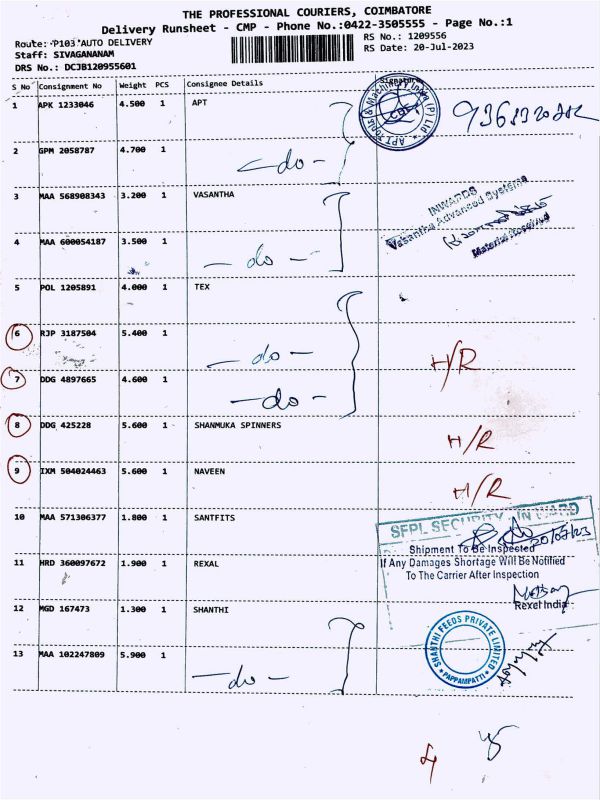 THE PROFESSIONAL COURIERS, COIMBATORE
Delivery Runsheet - CMP - Phone No.:0422-3505555 - Page No.:1
Route: P103 AUTO DELIVERY
RS No.: 1209556
Staff: SIVAGANANAM
RS Date: 20-Jul-2023
DRS No.: DCJB120955601
S No Consignment No Weight PCS Consignee Details Signature
1 APK 1233046 4.500 1 APT
APT Tools & Machinery India (P) Ltd
CBE
2 GPM 2058787 4.700 1
-do-
3 MAA 568908343 3.200 1 VASANTHA
INWARDS
Vasantha Advanced Systems
Material Received
4 MAA 600054187 3.500 1
-do-
5 POL 1205891 4.000 1 TEX
6 RJP 3187504 5.400 1
-do-
H/R
7 DDG 4897665 4.600 1
-do-
8 DDG 425228 5.600 1 SHANMUKA SPINNERS
H/R
9 IXM 504024463 5.600 1 NAVEEN
H/R
10 MAA 571306377 1.800 1 SANTFITS
SFPL SECURITY IN WARD
20/07/23
11 HRD 360097672 1.900 1 REXAL
Shipment To Be Inspected
If Any Damages Shortage Will Be Notified
To The Carrier After Inspection
Rexel India
12 MGD 167473 1.300 1 SHANTHI
SHANTHI FEEDS PRIVATE LIMITED
PAPPAMPATTI
13 MAA 102247809 5.900 1
-do-